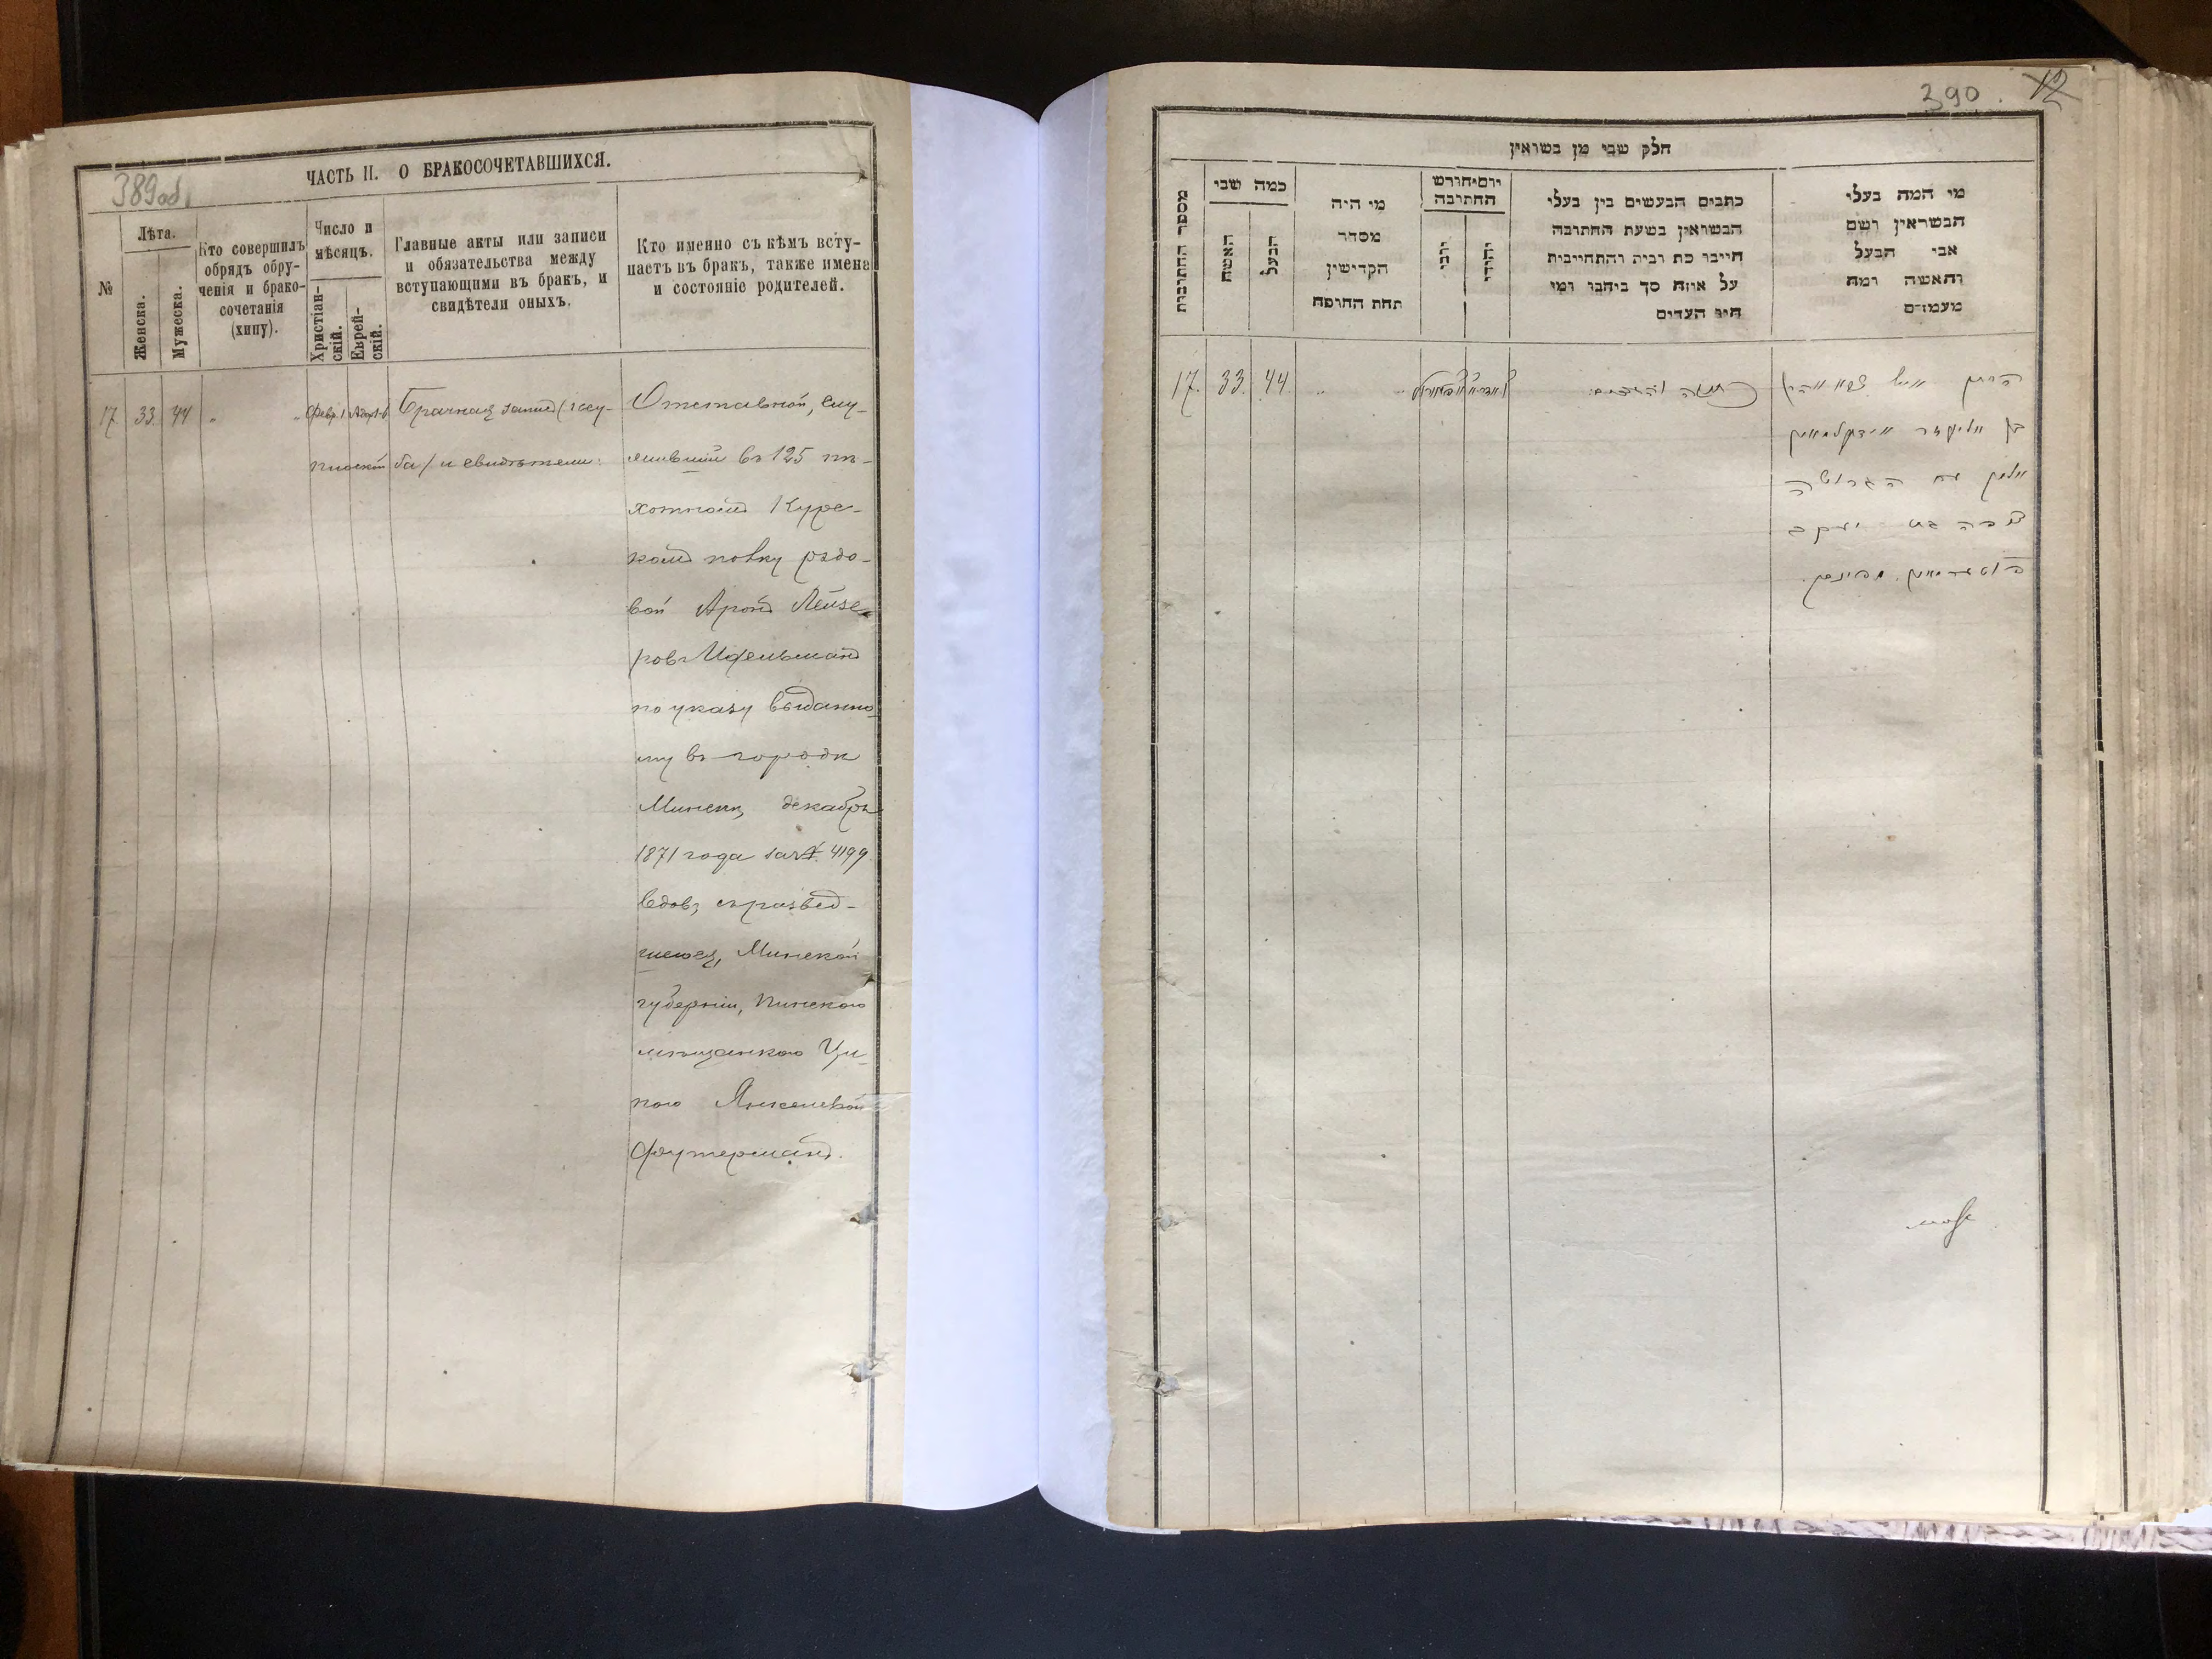 389 об.
ЧАСТЬ II. О БРАКОСОЧЕТАВШИХСЯ.
№
Лѣта.
Женска.
Мужеска.
Кто совершилъ
обрядъ обру-
ченія и брако-
сочетанія
(хипу).
Число и
мѣсяцъ.
Христіан-
скій.
Еврей-
скій.
Главные акты или записи
и обязательства между
вступающими въ бракъ, и
свидѣтели оныхъ.
Кто именно съ кѣмъ всту-
паетъ въ бракъ, также имена
и состояніе родителей.
17 33. 44 " "
Февр. 1
Брачная
ба/ и свидѣтели:
Отставной, слу-
жившій въ 125 пѣ-
хотномъ Курс-
комъ полку рядо-
вой Аронъ Лейзе-
ровъ Идельманъ
по указу выданно-
му въ городѣ
Минскѣ, декабрѣ
1871 года за № 4199
вдовъ, съ развед-
шеюся, Минской
губерніи, Пинскою
мѣщанкою Ци-
пою Янкелевой
Футерманъ.
390. 12
חלק שני מן בשואין
מספר החתונות
כמה שני
האשה
הבעל
מי היה
מסדר
הקדישין
תחת החופה
יום וחורש
החתובה
יוני
יהודי
כתבים הבעשים בין בעלי
הבשואין בשעת החתובה
חייבו כת רבית והתחייבות
על איזה סך ביחבו ומי
היו העדים
מי המה בעלי
הבשראין ושם
אבי הבעל
והאשה ומה
מעמדם
17. 33. 44. "
בן אליעזר אידעלמאן
אלמן עם הגרושה
ציפה בת יעקב
פוטערמאן מפינסק.